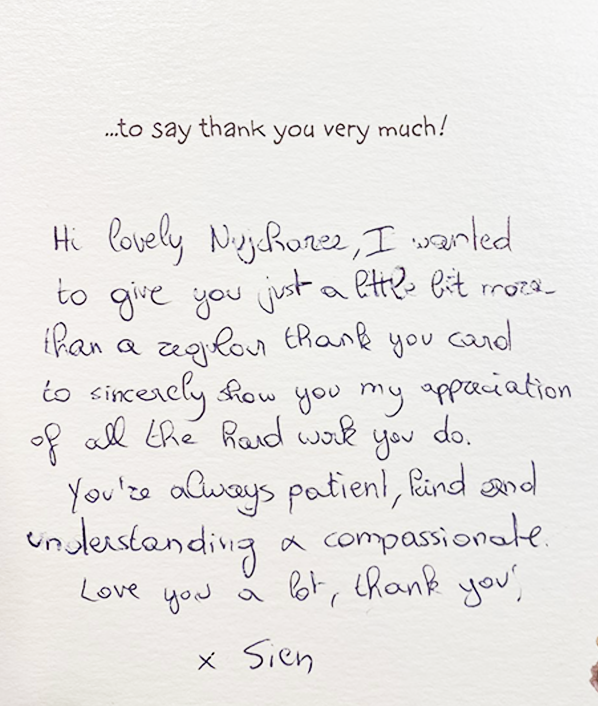 ...to say thank you very much!
Hi lovely Nyjcharee, I wanted
to give you just a little bit more
than a regular thank you card
to sincerely show you my appreciation
of all the hard work you do.
You're always patient, kind and
understanding & compassionate.
Love you a lot, thank you,
x Sien